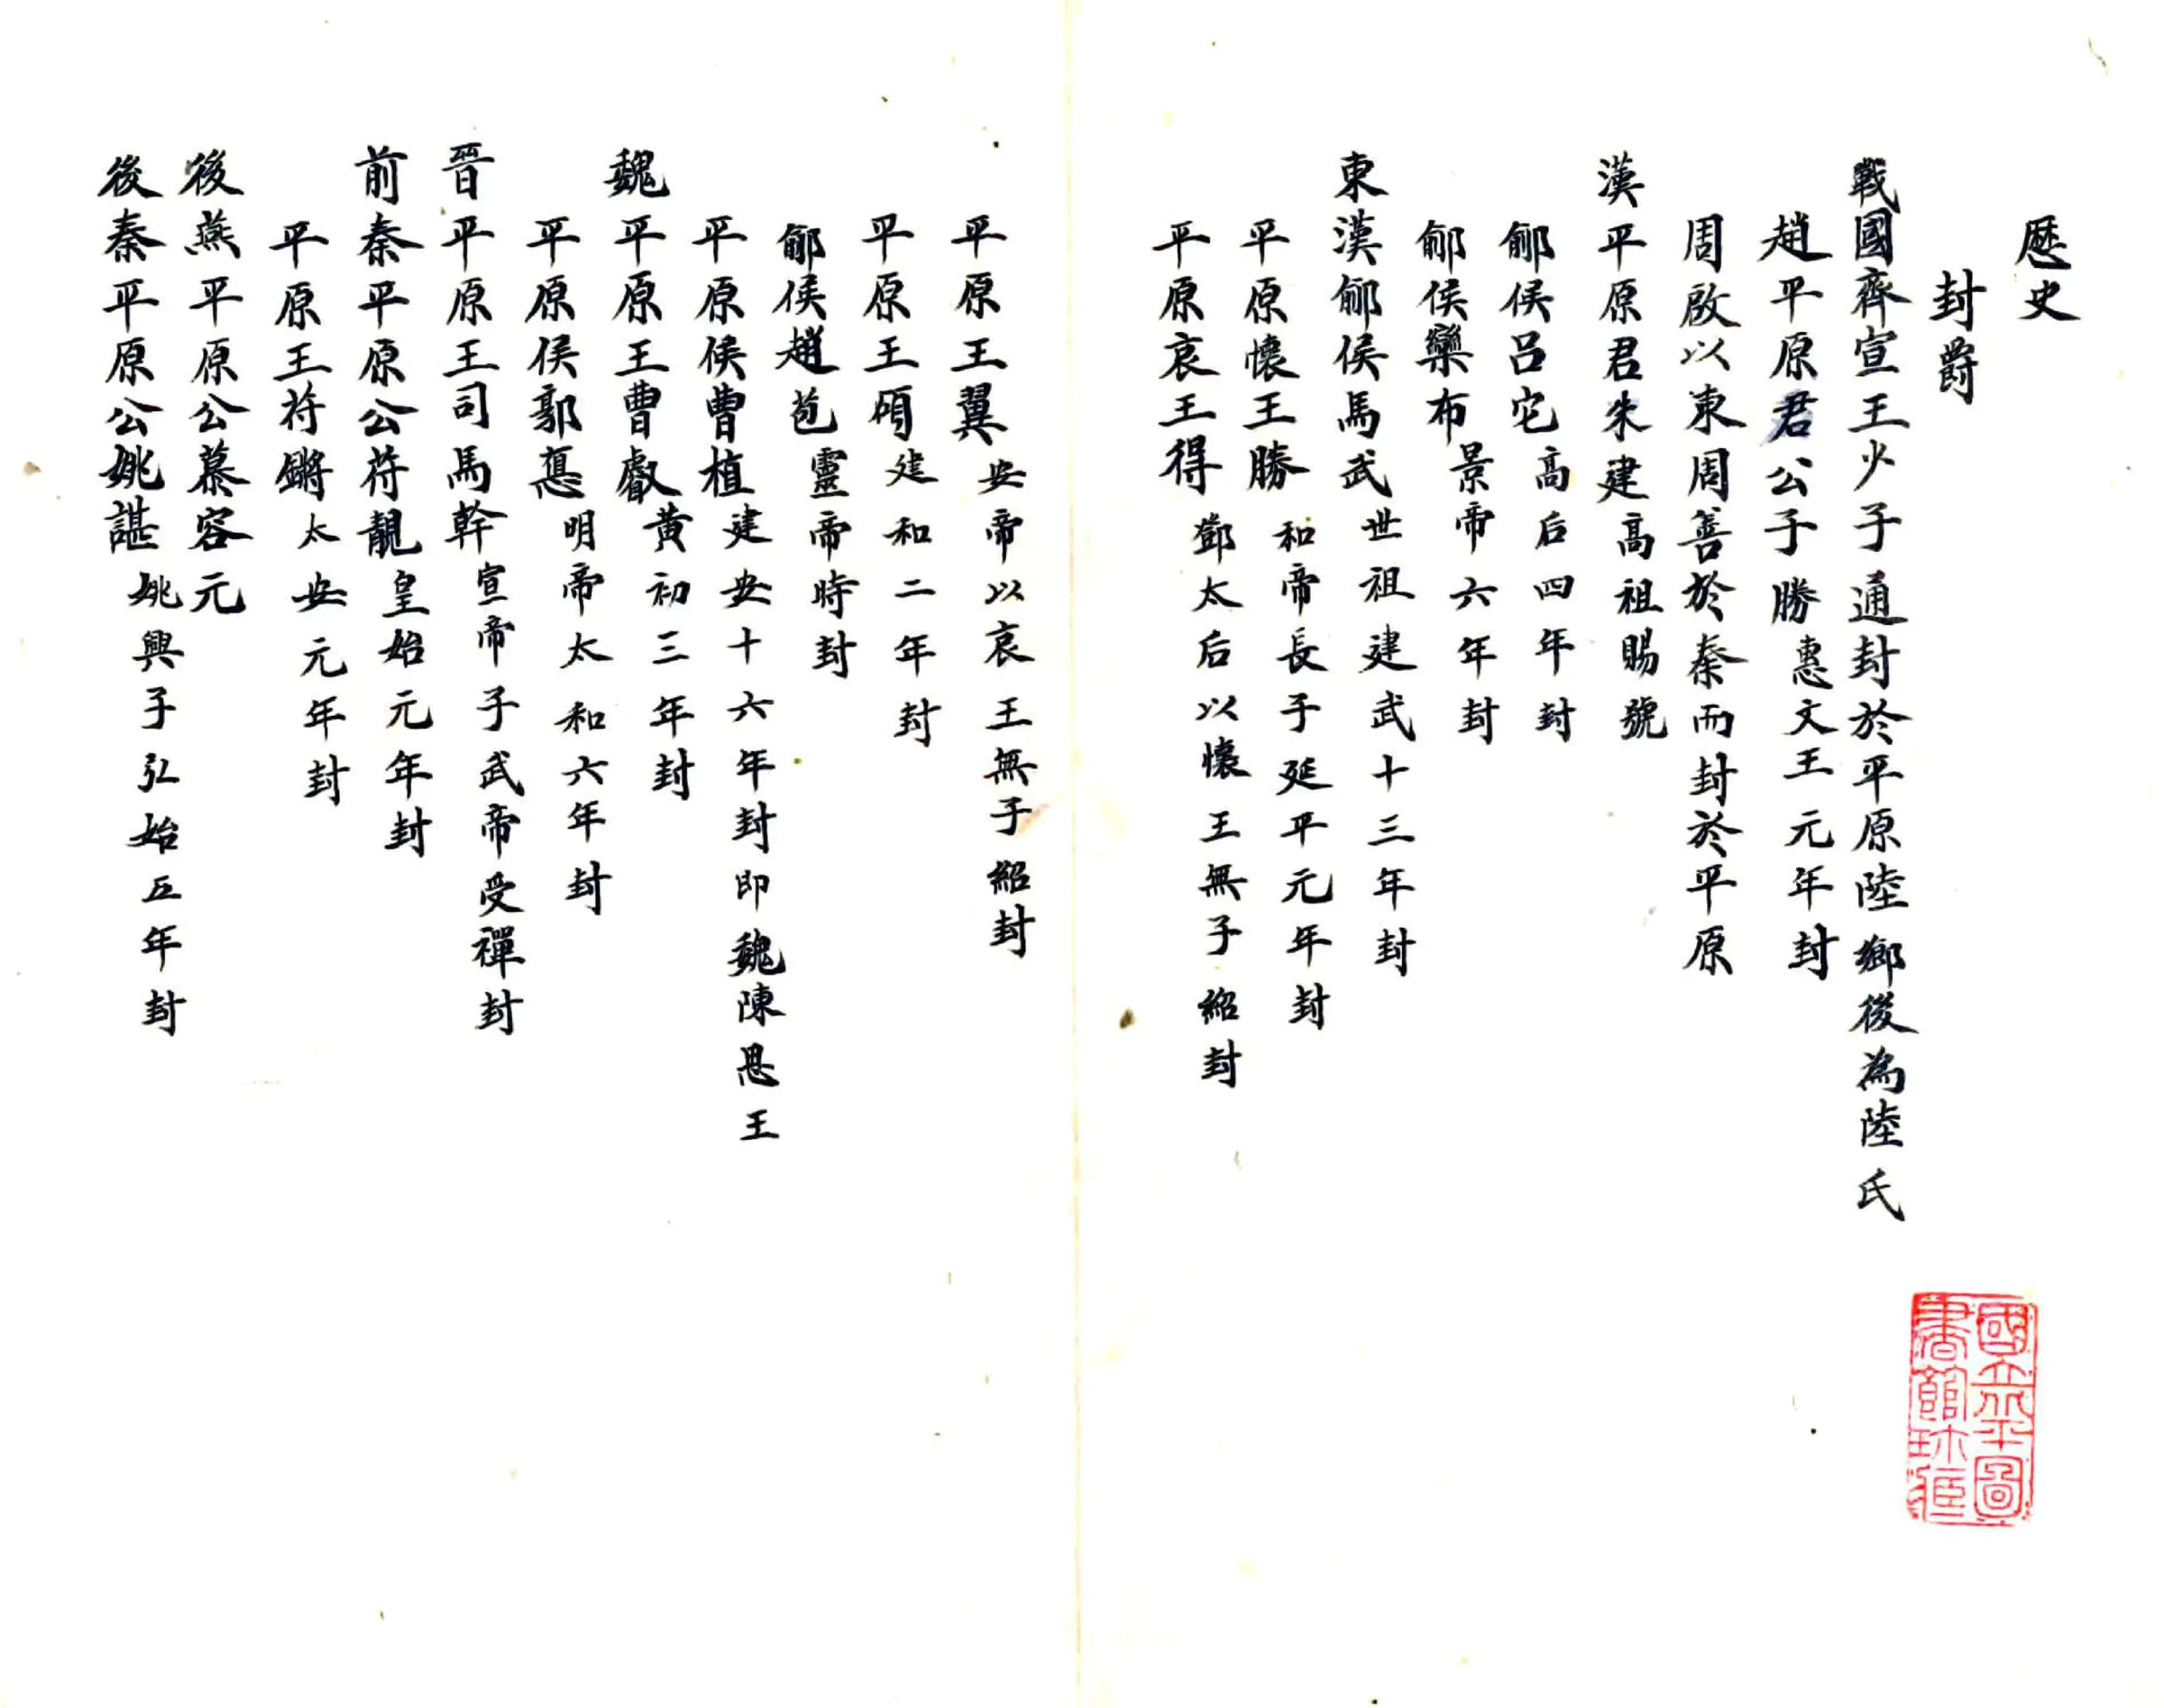 歷史
封爵
戰國齊宣王少子通封於平原陸鄉後為陸氏
趙平原君公子勝惠文王元年封
周啟以東周善於秦而封於平原
漢平原君朱建高祖賜號
鄃侯呂它高后四年封
鄃侯欒布景帝六年封
東漢鄃侯馬武世祖建武十三年封
平原懷王勝和帝長子延平元年封
平原哀王得鄧太后以懷王無子紹封
平原王翼安帝以哀王無子紹封
平原王碩建和二年封
鄃侯趙苞靈帝時封
平原侯曹植建安十六年封即魏陳思王
魏平原王曹叡黃初三年封
平原侯郭惪明帝太和六年封
晉平原王司馬幹宣帝子武帝受禪封
前秦平原公苻靚皇始元年封
平原王苻鏘太安元年封
後燕平原公慕容元
後秦平原公姚諶姚興子弘始五年封
國立北平圖
書館珍藏